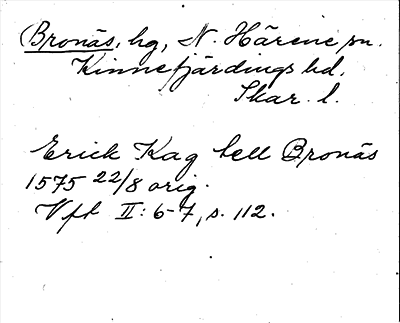 Bronäs, hg, N. Härene sn.
Kinnefjärdings hd.
Skar. l.
Erick Kag till Bronäs
1575 22/8 orig.
Vft II: 6-7, s. 112.